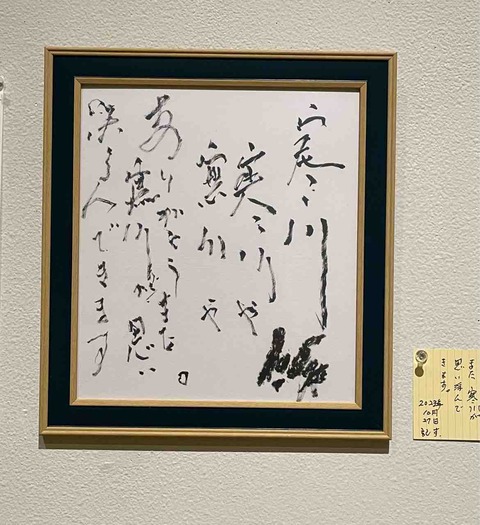 寒川
寒川や
寒川や
ありがとうまた
寒川が思い
浮んできます
また 寒川が
思い浮んで
きます。
2023年
10月
27日
記す